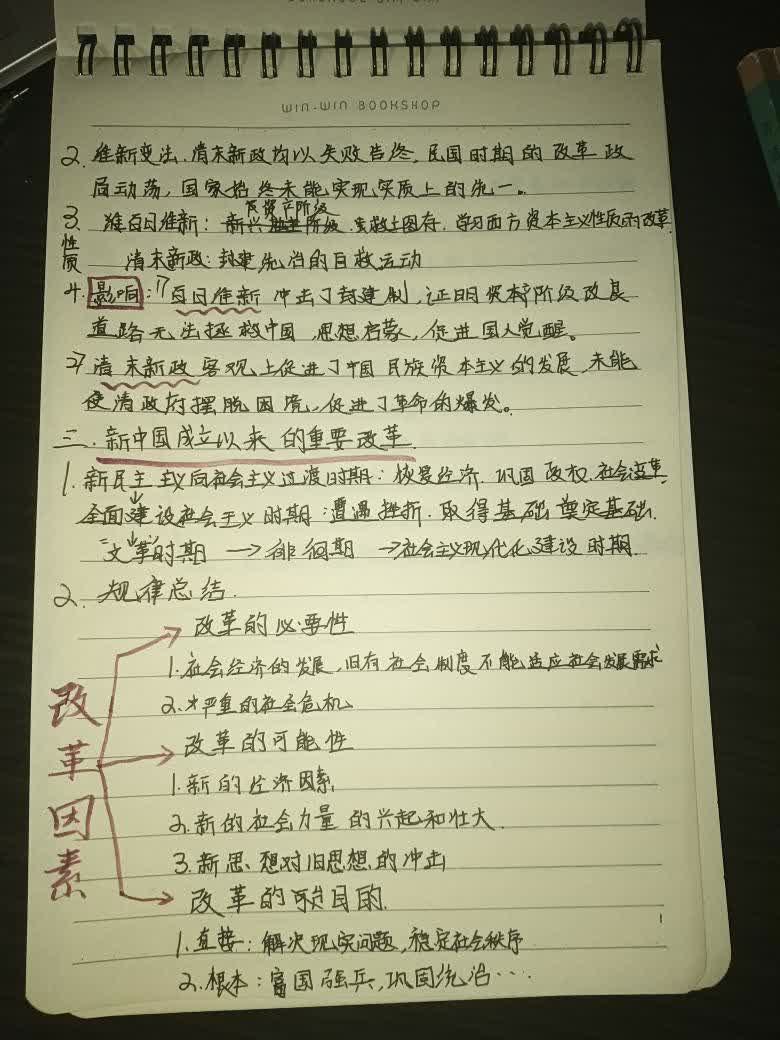 WIN-WIN BOOKSHOP
2. 维新变法、清末新政均以失败告终,民国时期的改革政
局动荡,国家始终未能实现实质上的统一。
资产阶级
3. 百日维新:新兴 救亡图存、学习西方资本主义性质的改革
性质
清末新政:封建统治的自救运动
4. 影响:1)百日维新 冲击了封建制,证明资本阶级改良
道路无法拯救中国 思想启蒙,促进国人觉醒。
2)清末新政 客观上促进了中国民族资本主义的发展,未能
使清政府摆脱困境,促进了革命的爆发。
三、新中国成立以来的重要改革
1. 新民主主义向社会主义过渡时期:恢复经济、巩固政权、社会变革
全面建设社会主义时期:遭遇挫折、取得基础 奠定基础.
"文革"时期 → 徘徊期 → 社会主义现代化建设时期.
2. 规律总结.
改革因素
改革的必要性
1. 社会经济的发展,旧有社会制度不能适应社会发展需求
2. 严重的社会危机
改革的可能性
1. 新的经济因素
2. 新的社会力量的兴起和壮大
3. 新思想对旧思想的冲击
改革的目的.
1. 直接:解决现实问题,稳定社会秩序
2. 根本:富国强兵,巩固统治...